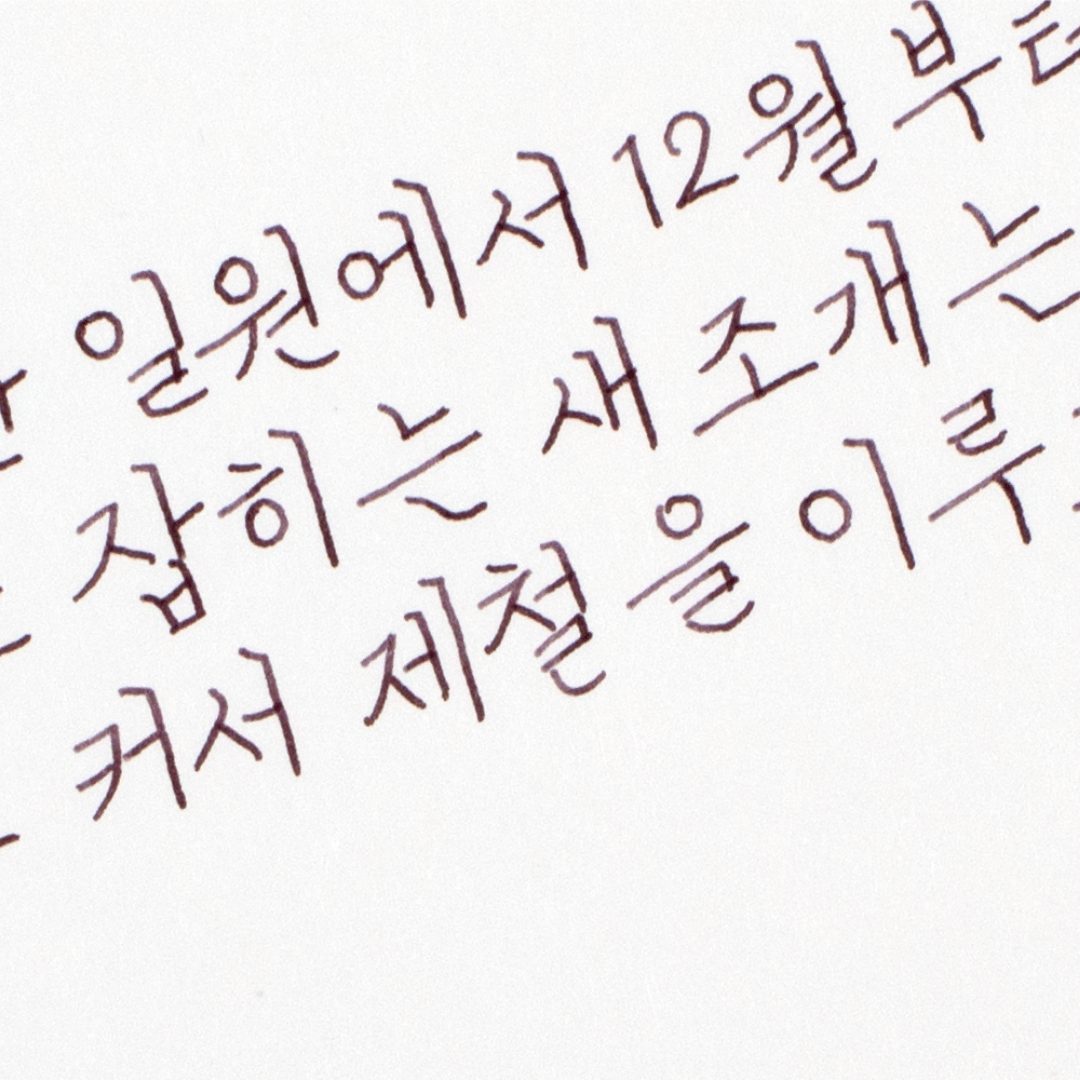 일원에서 12월부터
잡히는 새조개는
커서 제철을 이루